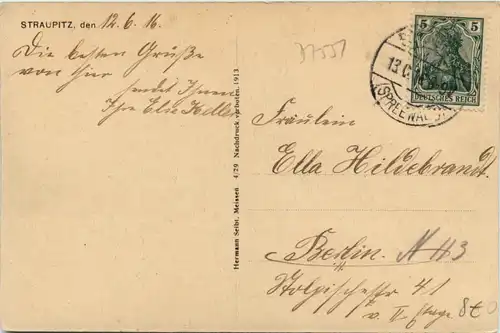 STRAUPITZ, den 12.6.16.
Die besten Grüße
von hier
sendet Ihnen
Ihre Elsa Keller
Hermann Seibt, Meissen 4/29 Nachdruck verboten. 1913.
37551
5 5
DEUTSCHES REICH
13.
(SPREEWALD)
Fräulein
Ella Hildebrandt.
Berlin. N 113
Stolpischestr 41
v. II. Etage
8€